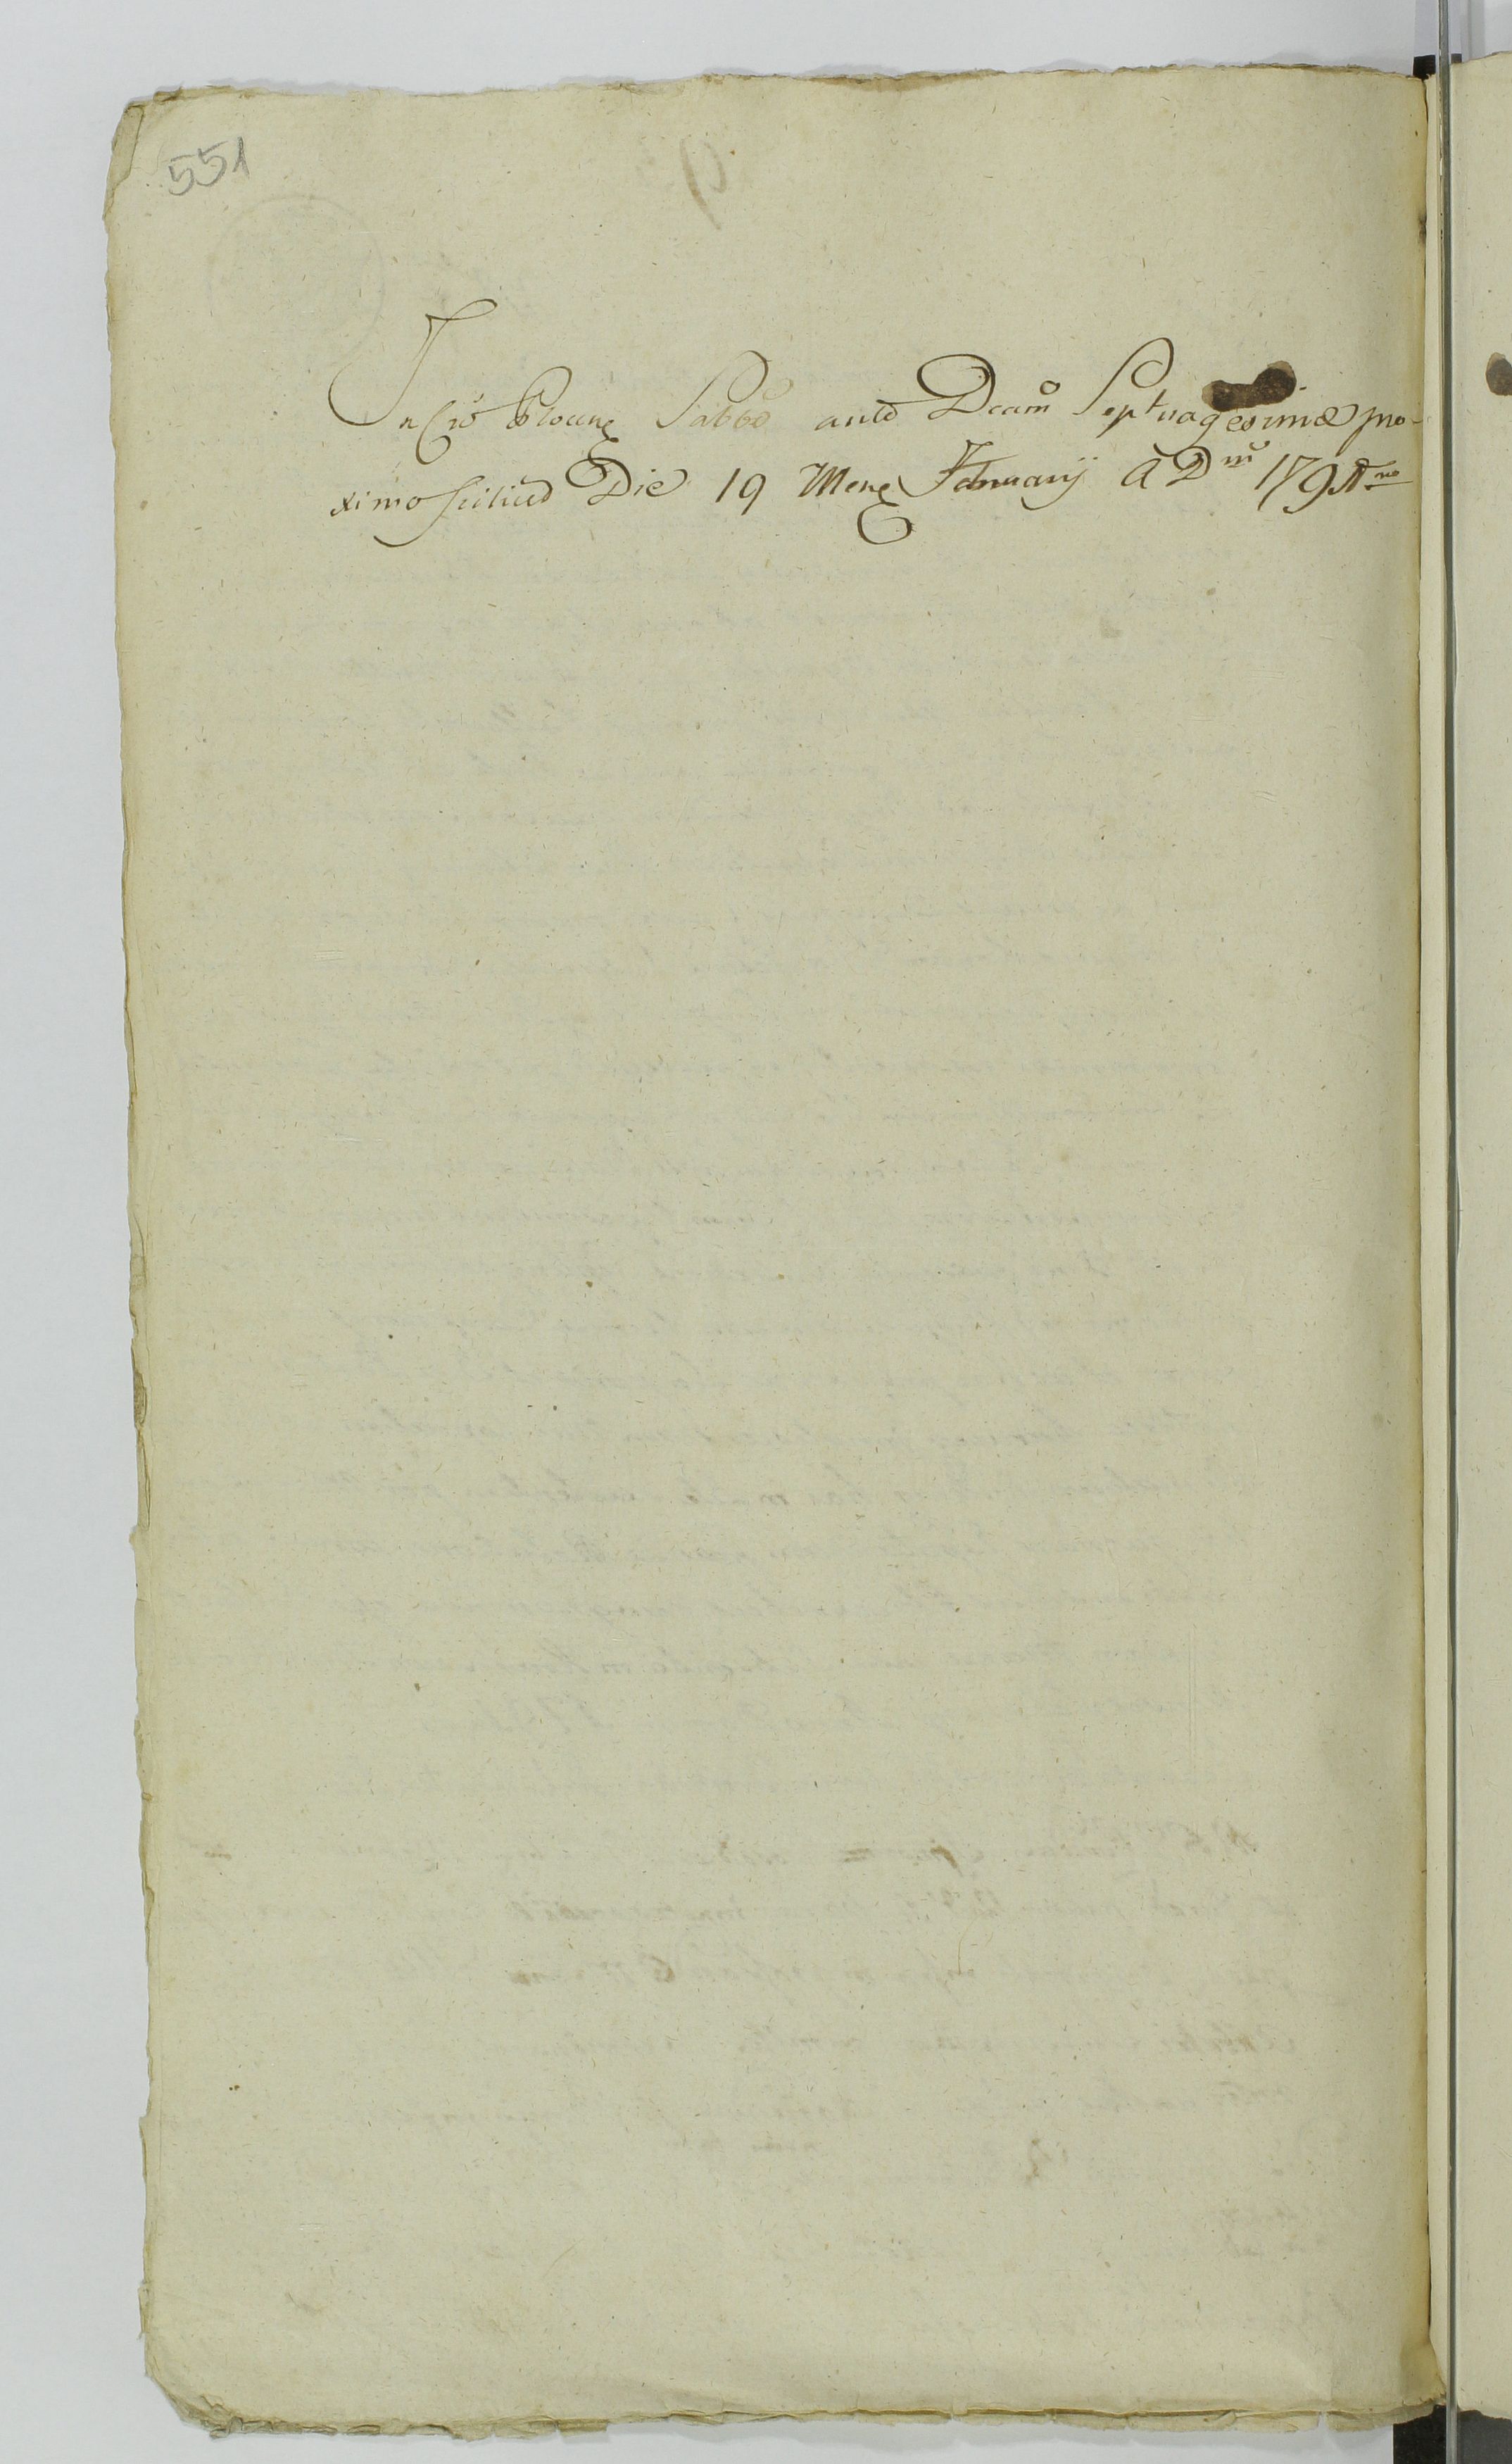 551
In Cro Plocen Sabbo ante Dcam Septuagesimæ pro-
ximo scilicet Die 19 Mens February A Dni 1791mo